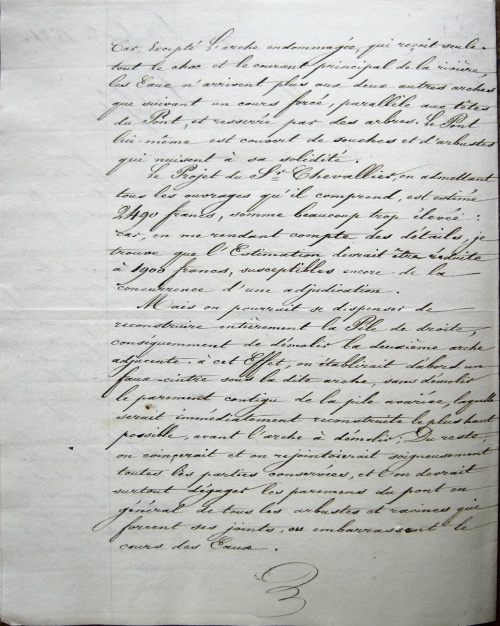 Car, Excepté l'arche endommagée, qui reçoit seule
tout le choc et le courant principal de la rivière,
les Eaux n'arrivent plus aux deux autres arches
que suivant un cours forcé, parallèle aux têtes
du Pont, et resserré par des arbres. Le Pont
lui-même est couvert de souches et d'arbustes
qui nuisent à sa solidité.
Le Projet du Sr Chevallier, en admettant
tous les ouvrages qu'il comprend, est estimé
2490 francs, somme beaucoup trop élevée :
Car, en me rendant compte des détails, je
trouve que l'Estimation devrait être réduite
à 1900 francs, susceptibles encore de la
concurrence d'une adjudication.
Mais on pourrait se dispenser de
reconstruire entièrement la Pile de droite,
conséquemment de démolir la deuxième arche
adjacente. à cet Effet, on établirait d'abord un
faux-cintre sous la dite arche, sans démolir
le parement contigu de la pile avariée, laquelle
serait immédiatement reconstruite le plus haut
possible, avant l'arche à démolir. Du reste,
on coinçerait et on rejointoierait soigneusement
toutes les parties conservées, et l'on devrait
surtout dégager les paremens du pont en
général de tous les arbustes et racines qui
forcent ses joints, ou embarrassent le
cours des Eaux.